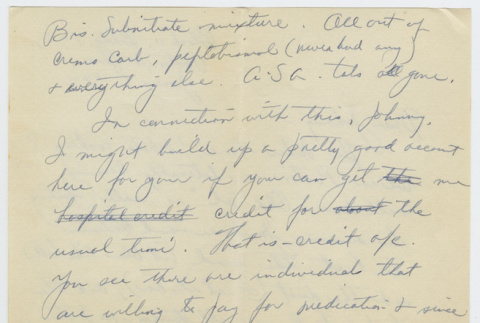 Bis. Subnitrate mixture. All out of
cremo carb, peptobismal (never had any)
& everything else. A.S.A. tabs all gone.
In connection with this, Johnny,
I might build up a pretty good account
here for your if your can get the me
hospital credit credit for about the
usual time. That is - credit a/c.
You see there are individuals that
are willing to pay for medication & since